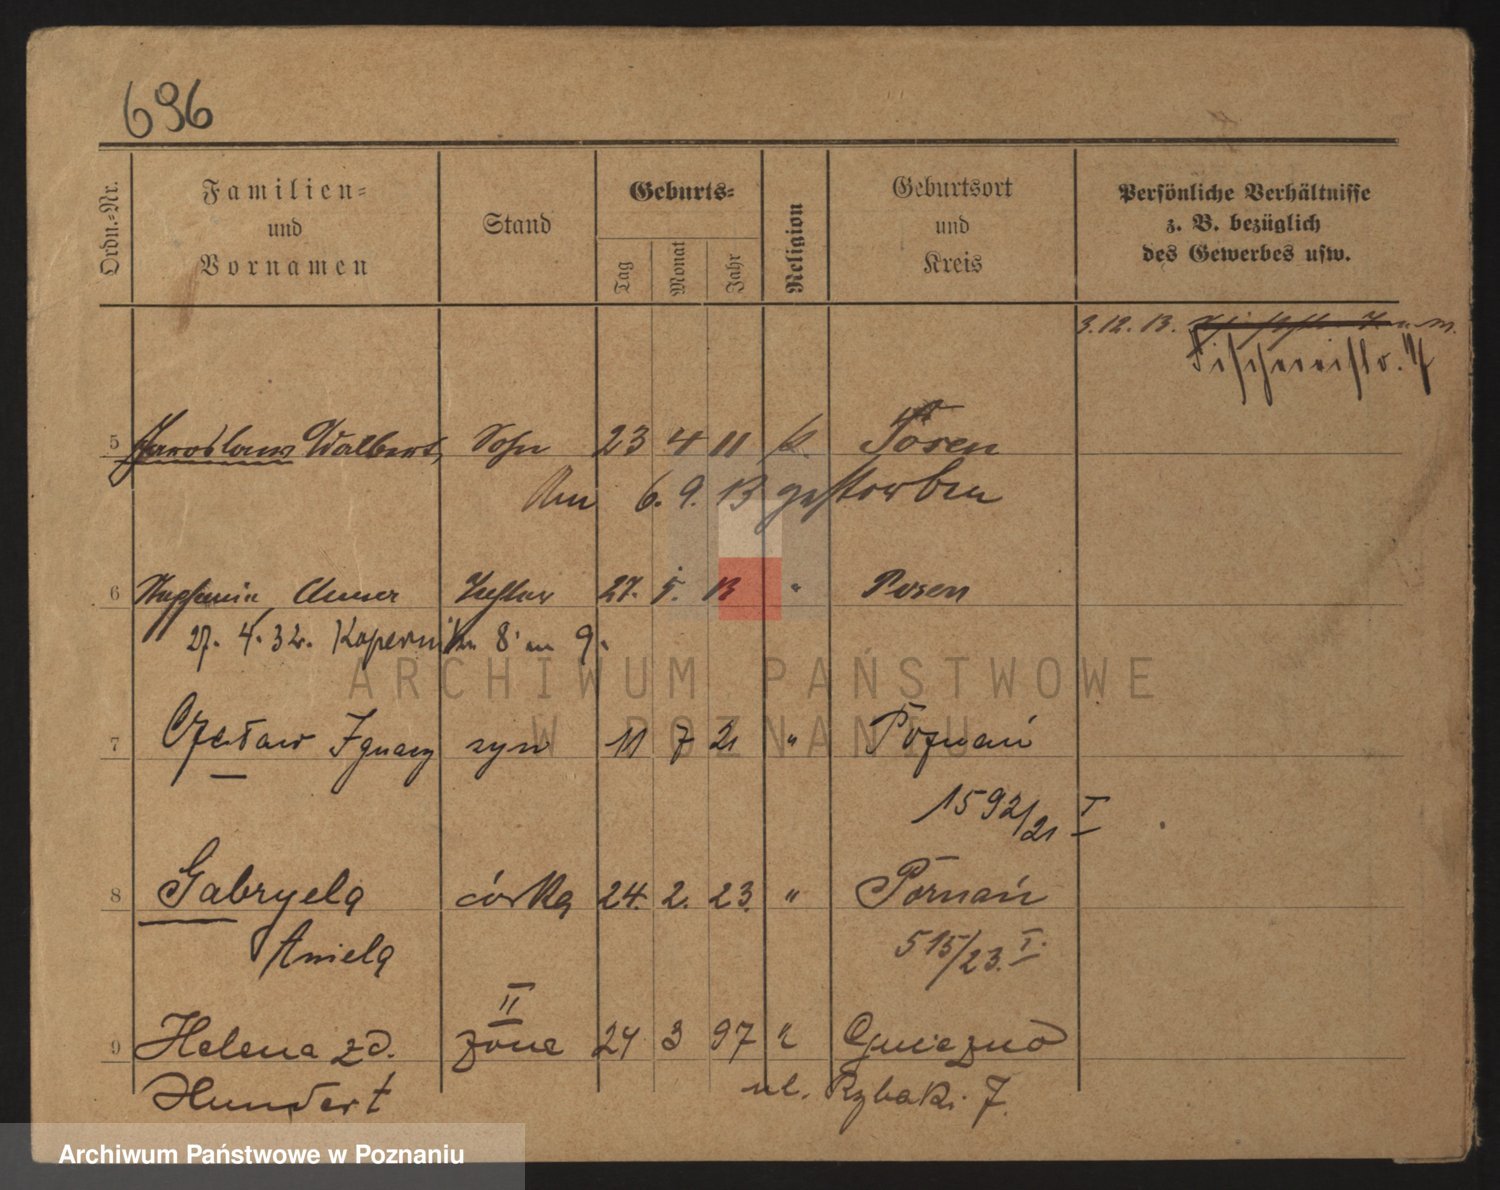 696
Ordn.-Nr.
Familien-
und
Vornamen
Stand
Geburts-
Tag
Monat
Jahr
Religion
Geburtsort
und
Kreis
Persönliche Verhältnisse
z. B. bezüglich
des Gewerbes usw.
3.12.13.
Fischereistr. 7
5 Jaroslaus Walbert, Sohn 23 4 11 k. Posen
Am 6. 9. 13 gestorben
6 Stephania Anna Tochter 27. 5. 13 " Posen
27. 4. 32. 8 m 9.
7 Czesław Ignacy syn 11 7 21 " Poznań
1592/21 I
8 Gabryela córka 24. 2. 23. " Poznań
Aniela 515/23. I.
II
9 Helena zd. żona 24 3 97 " Gniezno
Hundert ul. Rybaki 7.
ARCHIWUM PAŃSTWOWE
W POZNANIU
Archiwum Państwowe w Poznaniu